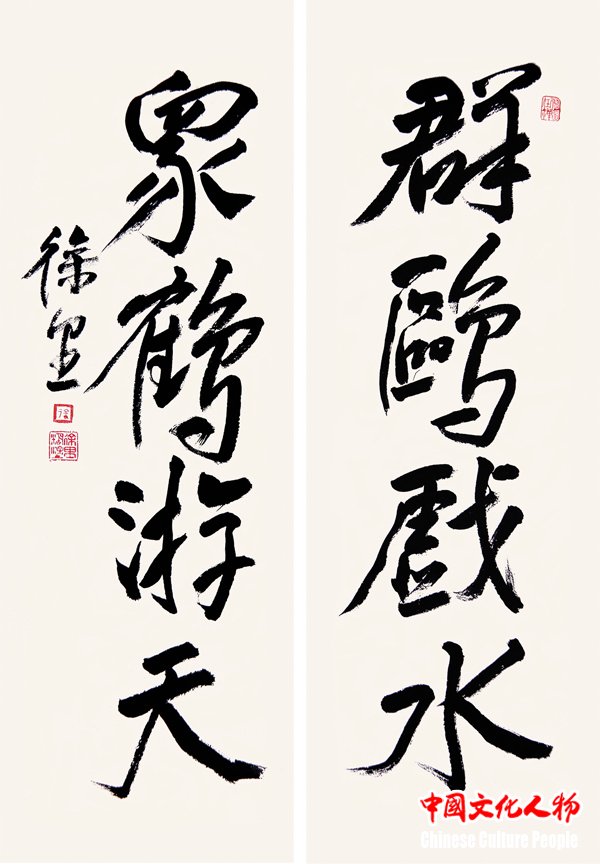 群鷗戲水
眾鶴游天
徐里
中國文化人物
Chinese Culture People